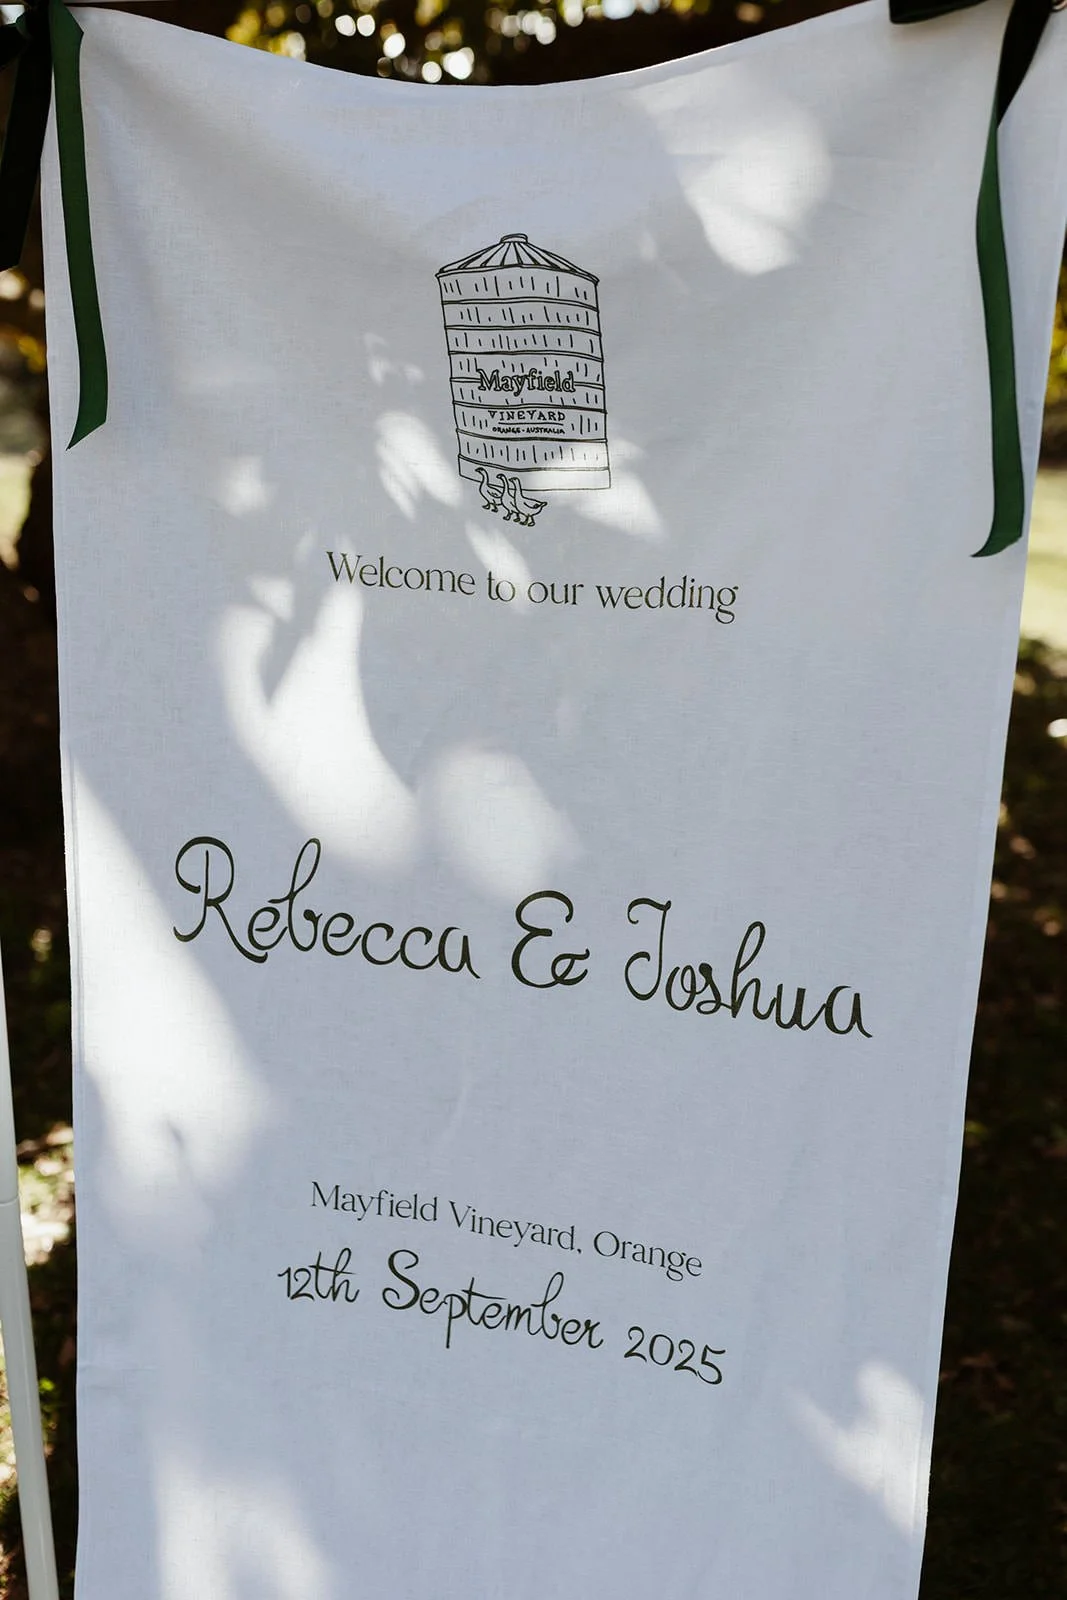 Mayfield
VINEYARD
ORANGE - AUSTRALIA
Welcome to our wedding
Rebecca & Joshua
Mayfield Vineyard, Orange
12th September 2025